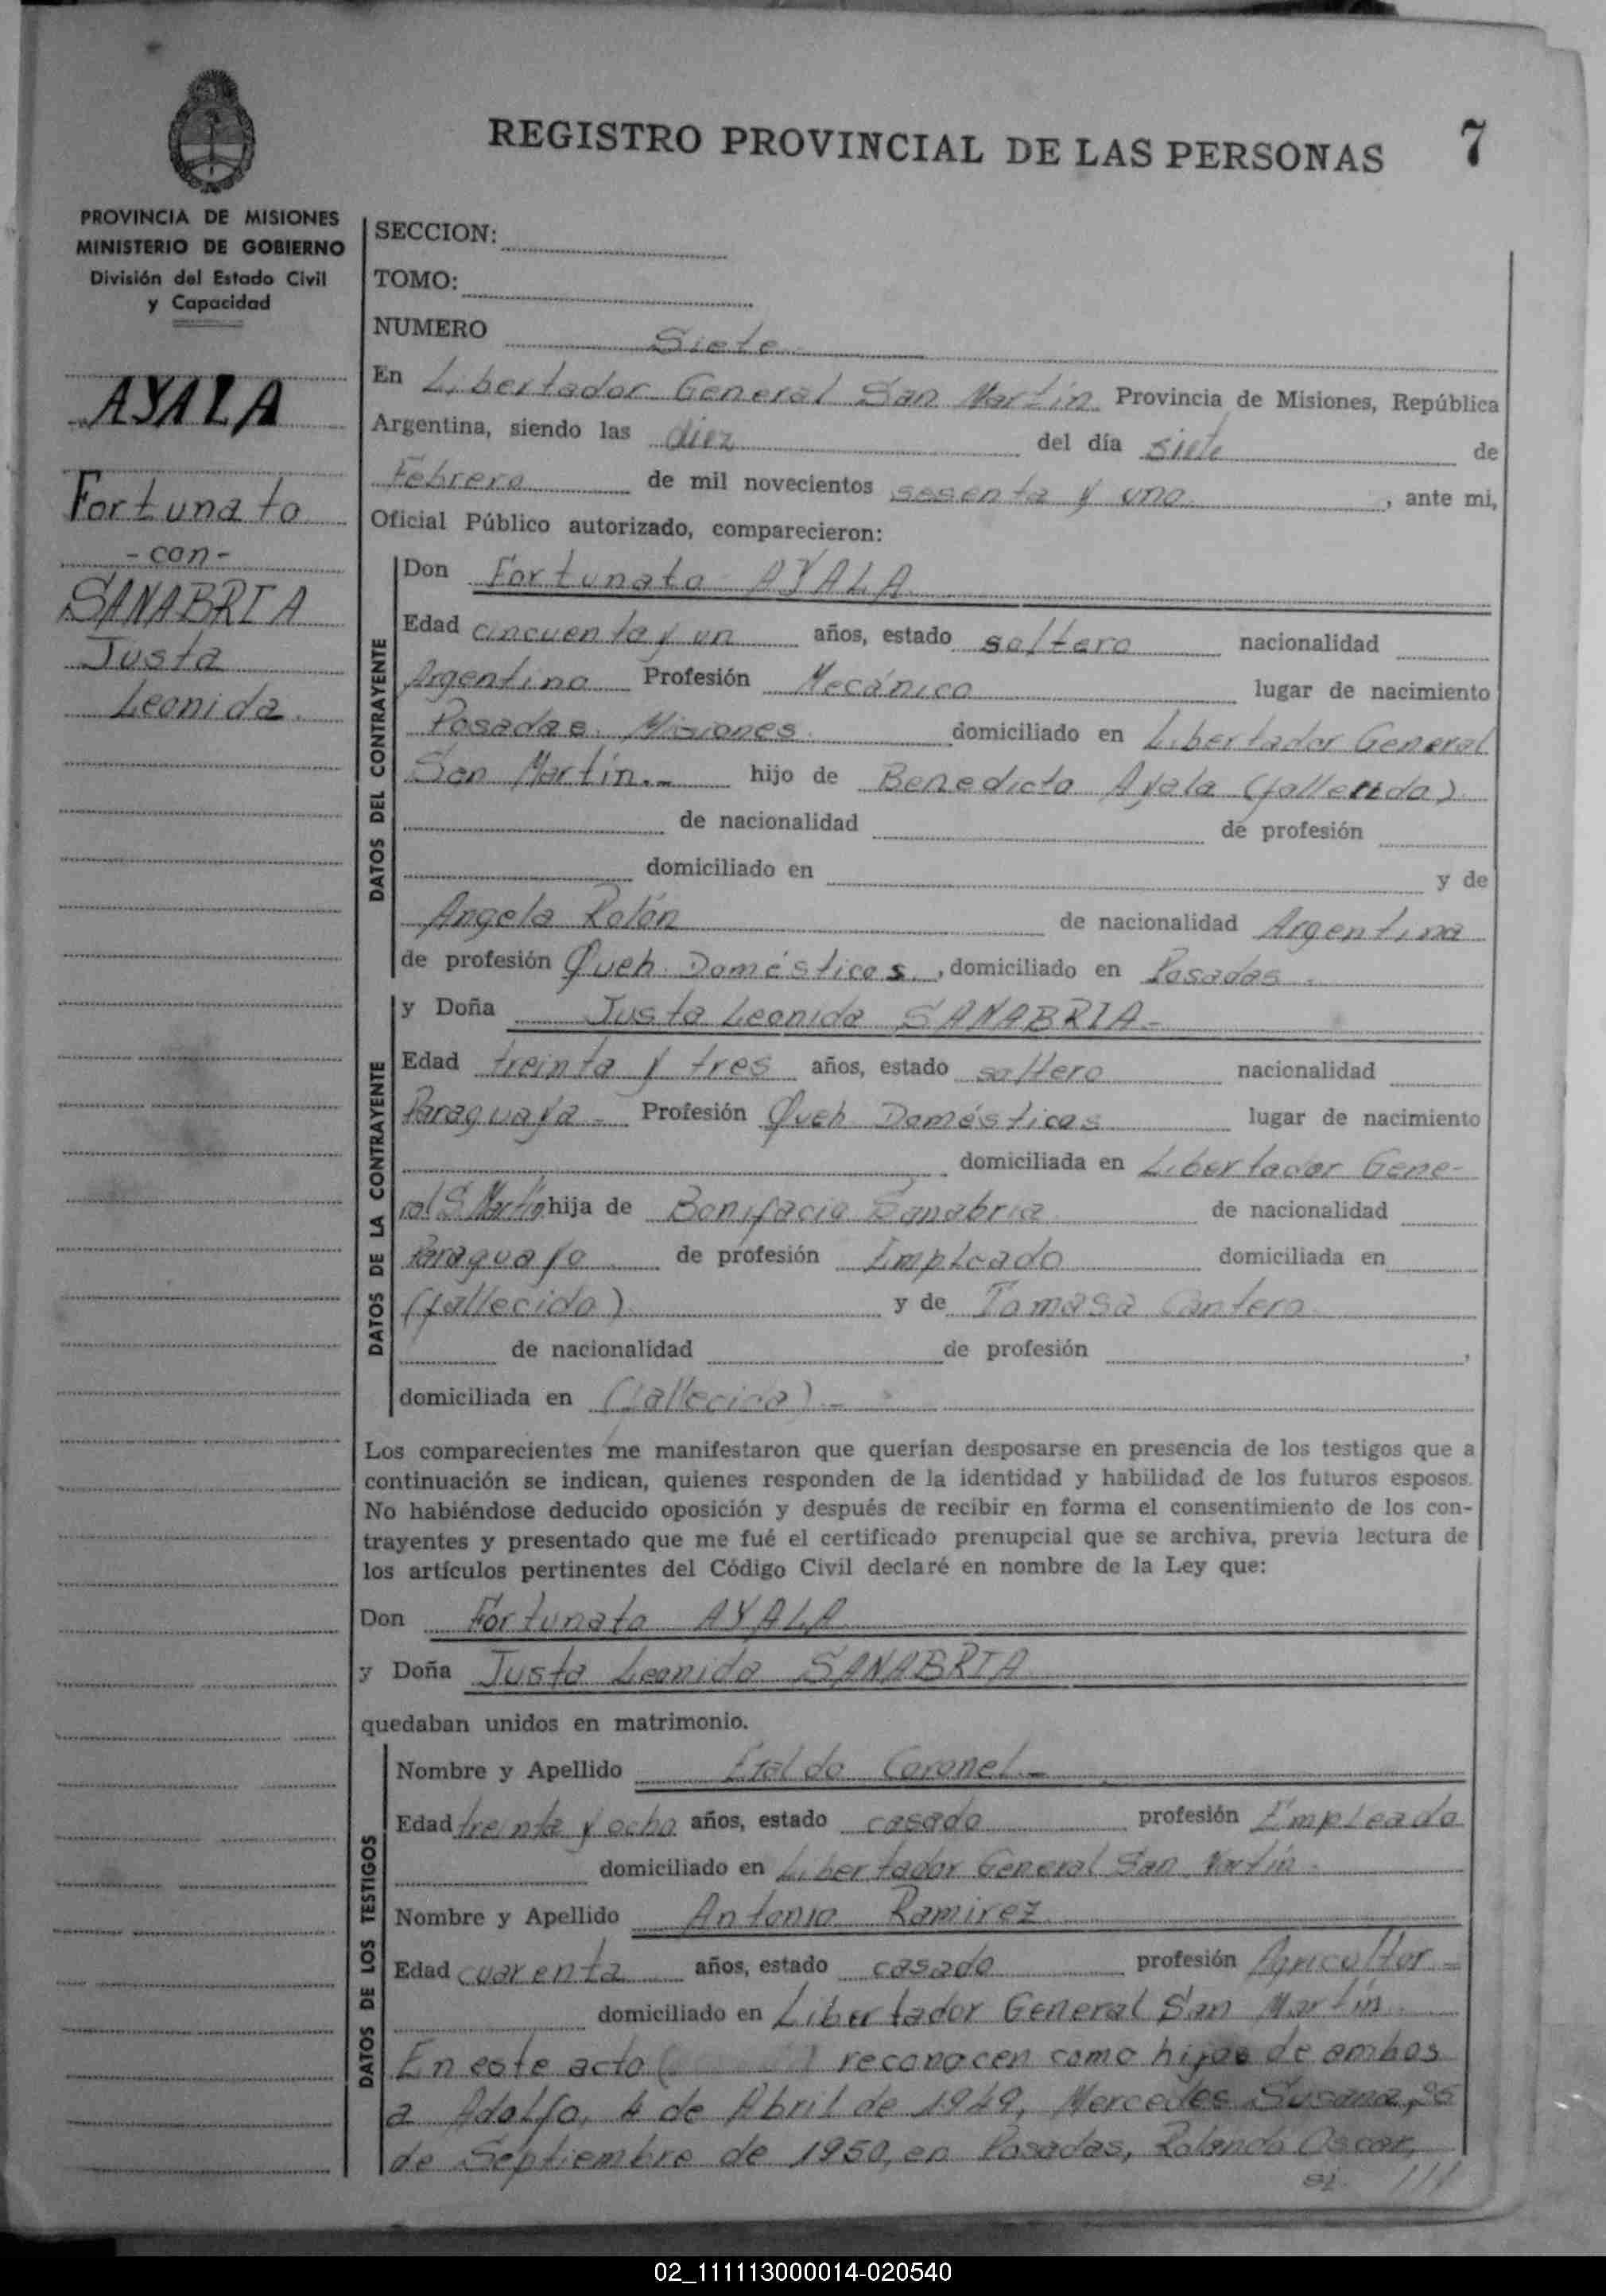 REGISTRO PROVINCIAL DE LAS PERSONAS 7
PROVINCIA DE MISIONES
MINISTERIO DE GOBIERNO
División del Estado Civil
y Capacidad
AYALA
Fortunato
- con -
SANABRIA
Justa
Leonida.
SECCION:
TOMO:
NUMERO Siete
En Libertador General San Martín Provincia de Misiones, República
Argentina, siendo las diez del día siete de
Febrero de mil novecientos sesenta y uno, ante mi,
Oficial Público autorizado, comparecieron:
DATOS DEL CONTRAYENTE
Don Fortunato AYALA
Edad cincuenta y un años, estado soltero nacionalidad
Argentino Profesión Mecánico lugar de nacimiento
Posadas. Misiones domiciliado en Libertador General
San Martín.- hijo de Benedicto Ayala (fallecido)
de nacionalidad de profesión
domiciliado en y de
Angela Rolón de nacionalidad Argentina
de profesión Queh. Domésticos, domiciliado en Posadas.
DATOS DE LA CONTRAYENTE
y Doña Justa Leonida SANABRIA-
Edad treinta y tres años, estado soltero nacionalidad
Paraguaya- Profesión Queh Domésticos lugar de nacimiento
domiciliada en Libertador Gene-
ral S. Martín hija de Bonifacio Sanabria de nacionalidad
Paraguayo de profesión Empleado domiciliada en
(fallecido) y de Tomasa Cantero
de nacionalidad de profesión ,
domiciliada en (fallecida)-
Los comparecientes me manifestaron que querían desposarse en presencia de los testigos que a
continuación se indican, quienes responden de la identidad y habilidad de los futuros esposos.
No habiéndose deducido oposición y después de recibir en forma el consentimiento de los con-
trayentes y presentado que me fué el certificado prenupcial que se archiva, previa lectura de
los artículos pertinentes del Código Civil declaré en nombre de la Ley que:
Don Fortunato AYALA
y Doña Justa Leonida SANABRIA
quedaban unidos en matrimonio.
DATOS DE LOS TESTIGOS
Nombre y Apellido Coronel-
Edad treinta y ocho años, estado casado profesión Empleado
domiciliado en Libertador General San Martín.
Nombre y Apellido Antonio Ramirez
Edad cuarenta años, estado casado profesión Agricultor-
domiciliado en Libertador General San Martín
En este acto ( ) reconocen como hijos de ambos
a Adolfo, 4 de Abril de 1949, Mercedes Susana,
de Septiembre de 1950, en Posadas, Rolando Oscar,
///
02_111113000014-020540